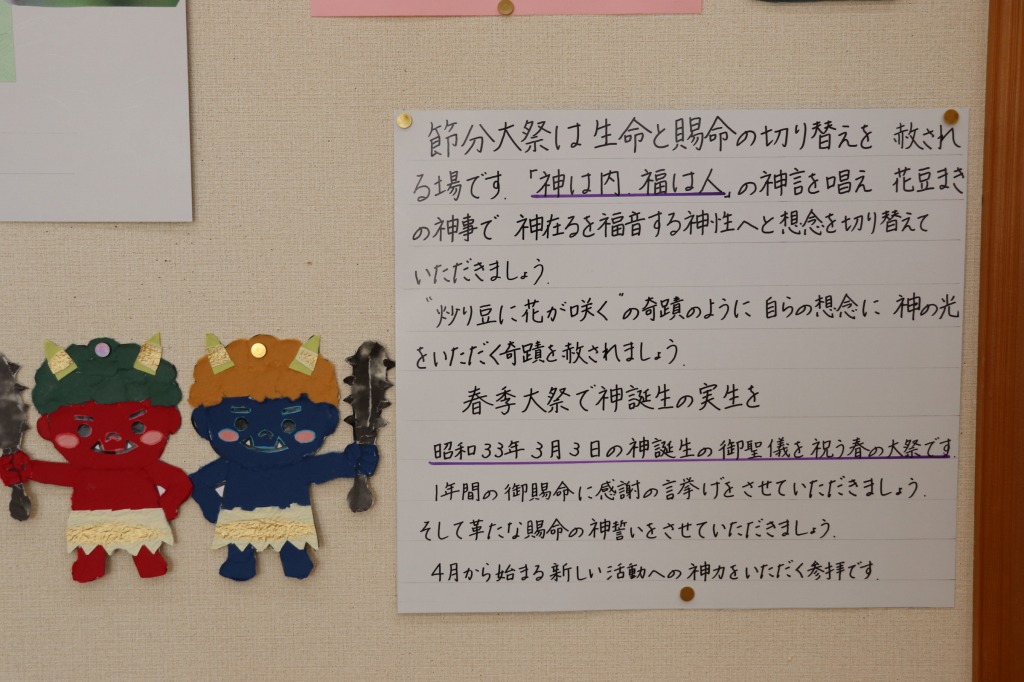 節分大祭は生命と賜命の切り替えを 赦され
る場です.「神は内.福は人」の神言を唱え 花豆まき
の神事で 神在るを福音する神性へと想念を切り替えて
いただきましょう.
"炒り豆に花が咲く"の奇蹟のように 自らの想念に 神の光
をいただく奇蹟を赦されましょう.
春季大祭で神誕生の実生を
昭和33年3月3日の神誕生の御聖儀を祝う春の大祭です.
1年間の御賜命に感謝の言挙げをさせていただきましょう.
そして革たな賜命の神誓いをさせていただきましょう.
4月から始まる新しい活動への神力をいただく参拝です.